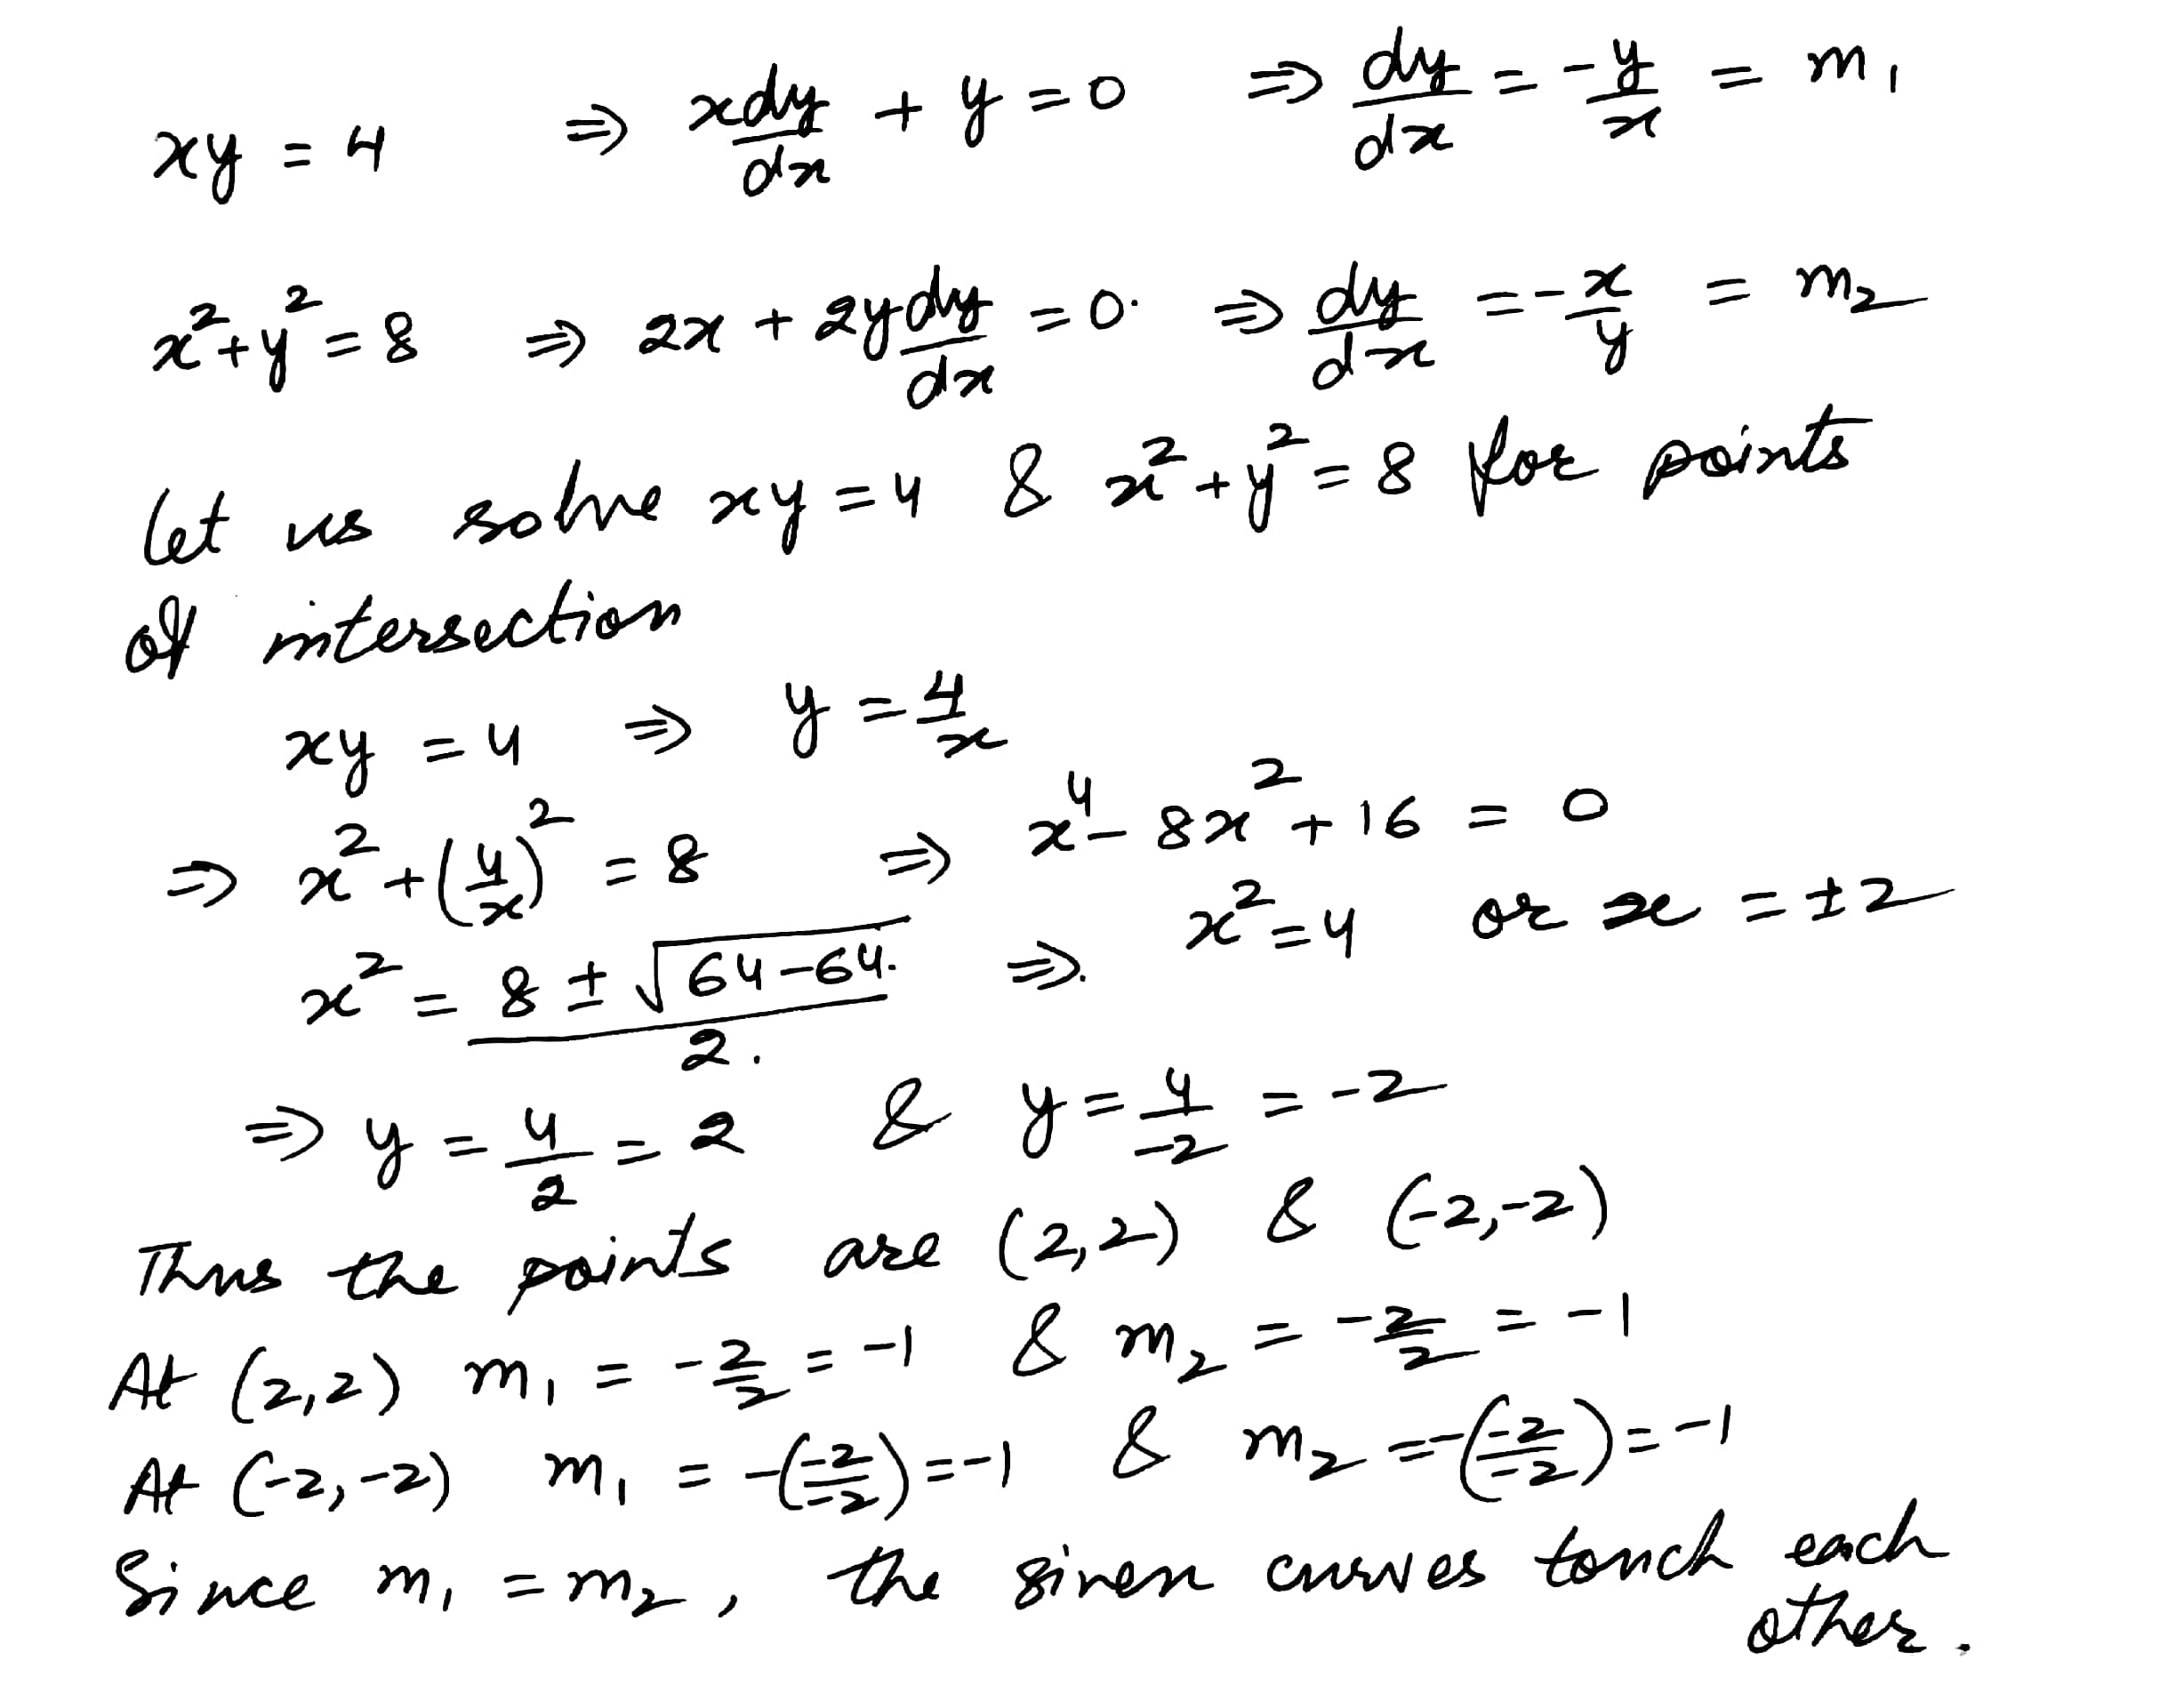 xy = 4 ⇒ x dy/dx + y = 0 ⇒ dy/dx = -y/x = m₁
x² + y² = 8 ⇒ 2x + 2y dy/dx = 0. ⇒ dy/dx = -x/y = m₂
Let us solve xy = 4 & x² + y² = 8 for points
of intersection
xy = 4 ⇒ y = 4/x
⇒ x² + (4/x)² = 8 ⇒ x⁴ - 8x² + 16 = 0
x² = (8 ± √(64-64.))/2. ⇒. x² = 4 or x = ±2
⇒ y = 4/2 = 2 & y = 4/-2 = -2
Thus the points are (2,2) & (-2,-2)
At (2,2) m₁ = -2/2 = -1 & m₂ = -2/2 = -1
At (-2,-2) m₁ = -(-2/-2) = -1 & m₂ = -(-2/-2) = -1
Since m₁ = m₂, the given curves touch each
other.